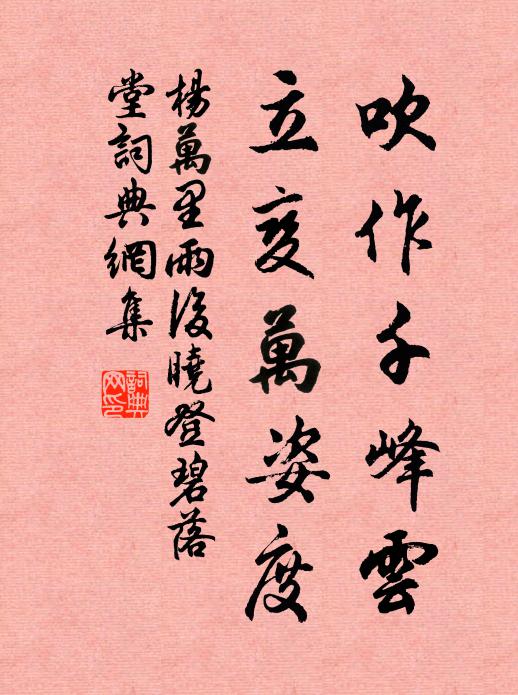 吹作千峰雲
立变萬姿度
楊萬里雨後曉登碧落
堂詞典網集
詞典
网印